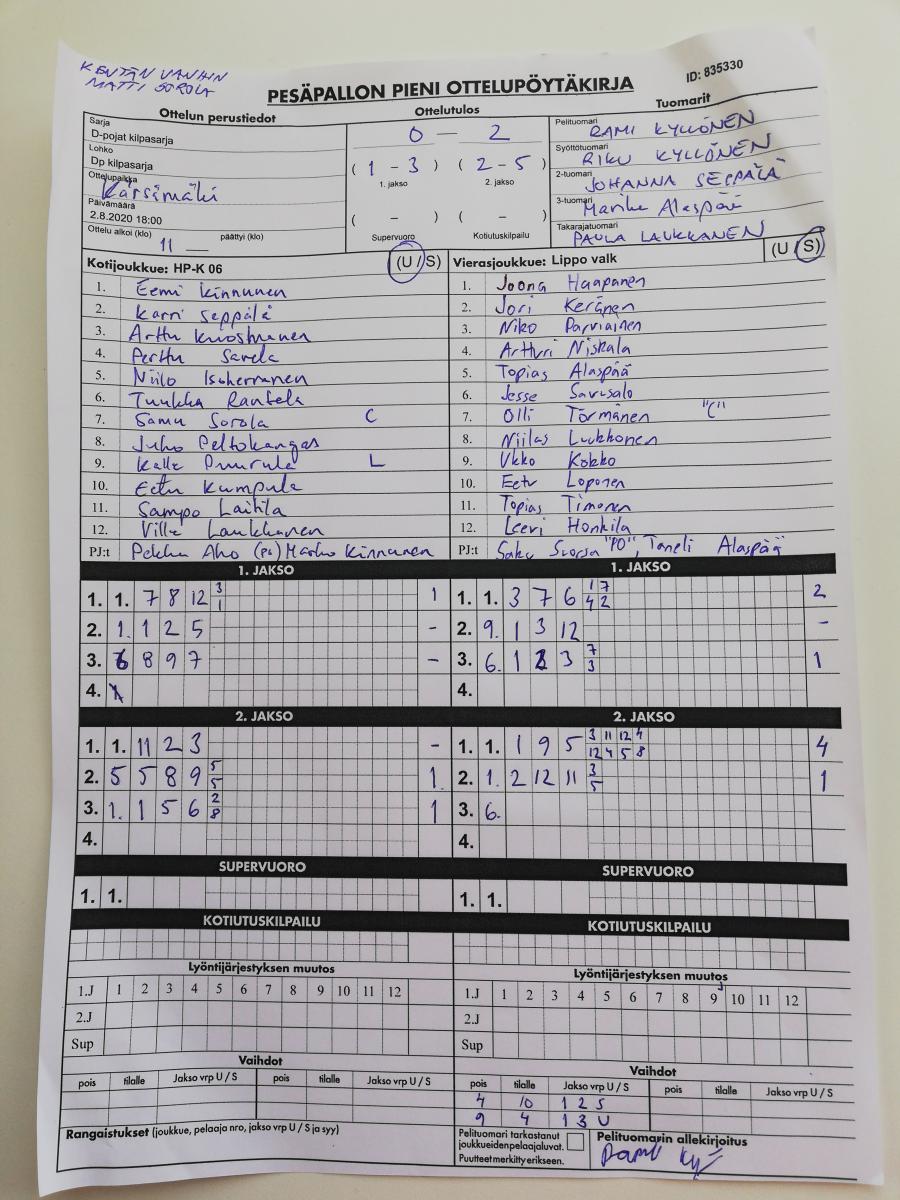 KENTÄN VANHIN
MATTI SOROLA
PESÄPALLON PIENI OTTELUPÖYTÄKIRJA
ID: 835330
Ottelun perustiedot
Ottelutulos
Tuomarit
Sarja
D-pojat kilpasarja
Lohko
Dp kilpasarja
Ottelupaikka
Kärsämäki
Päivämäärä
2.8.2020 18:00
Ottelu alkoi (klo) 11 päättyi (klo)
0 - 2
( 1 - 3 ) ( 2 - 5 )
1. jakso 2. jakso
( - ) ( - )
Supervuoro Kotiutuskilpailu
Pelituomari
RAMI KYLLÖNEN
Syöttötuomari
RIKU KYLLÖNEN
2-tuomari
JOHANNA SEPPÄLÄ
3-tuomari
Marika Alaspää
Takarajatuomari
PAULA LAUKKANEN
Kotijoukkue: HP-K 06 (U / S)
1. Eemi Kinnunen
2. Karri Seppälä
3. Arttu Kuoshmanen
4. Perttu Savela
5. Niilo Isoherranen
6. Tuukka Rantela
7. Samu Sorola C
8. Juho Peltokangas
9. Kalle Puurula L
10. Eetu Kumpula
11. Sampo Laitila
12. Ville Laukkanen
PJ:t Pekka Aho (PL) Marko Kinnunen
Vierasjoukkue: Lippo valk (U / S)
1. Joona Haapanen
2. Jori Keränen
3. Niko Parviainen
4. Artturi Niskala
5. Topias Alaspää
6. Jesse Savisalo
7. Olli Törmänen "C"
8. Niilas Luukkonen
9. Ukko Kokko
10. Eetu Loponen
11. Topias Timonen
12. Leevi Honkila
PJ:t Saku Suorsa "PO", Taneli Alaspää
1. JAKSO
1. 1. 7 8 12 3 1 1
2. 1. 1 2 5 -
3. 6 8 9 7 -
4.
1. JAKSO
1. 1. 3 7 6 1 7 4 2 2
2. 9. 1 3 12 -
3. 6. 1 2 3 7 3 1
4.
2. JAKSO
1. 1. 11 2 3 -
2. 5 5 8 9 5 5 1
3. 1. 1 5 6 2 8 1
4.
2. JAKSO
1. 1. 1 9 5 3 11 12 4 12 4 5 8 4
2. 1. 2 12 11 3 5 1
3. 6.
4.
SUPERVUORO
1. 1.
SUPERVUORO
1. 1.
KOTIUTUSKILPAILU
KOTIUTUSKILPAILU
Lyöntijärjestyksen muutos
1.J 1 2 3 4 5 6 7 8 9 10 11 12
2.J
Sup
Lyöntijärjestyksen muutos
1.J 1 2 3 4 5 6 7 8 9 10 11 12
2.J
Sup
Vaihdot
pois tilalle Jakso vrp U / S pois tilalle Jakso vrp U / S
Vaihdot
pois tilalle Jakso vrp U / S pois tilalle Jakso vrp U / S
4 10 1 2 S
9 4 1 3 U
Rangaistukset (joukkue, pelaaja nro, jakso vrp U / S ja syy)
Pelituomari tarkastanut
joukkueidenpelaajaluvat.
Puutteetmerkittyerikseen.
Pelituomarin allekirjoitus